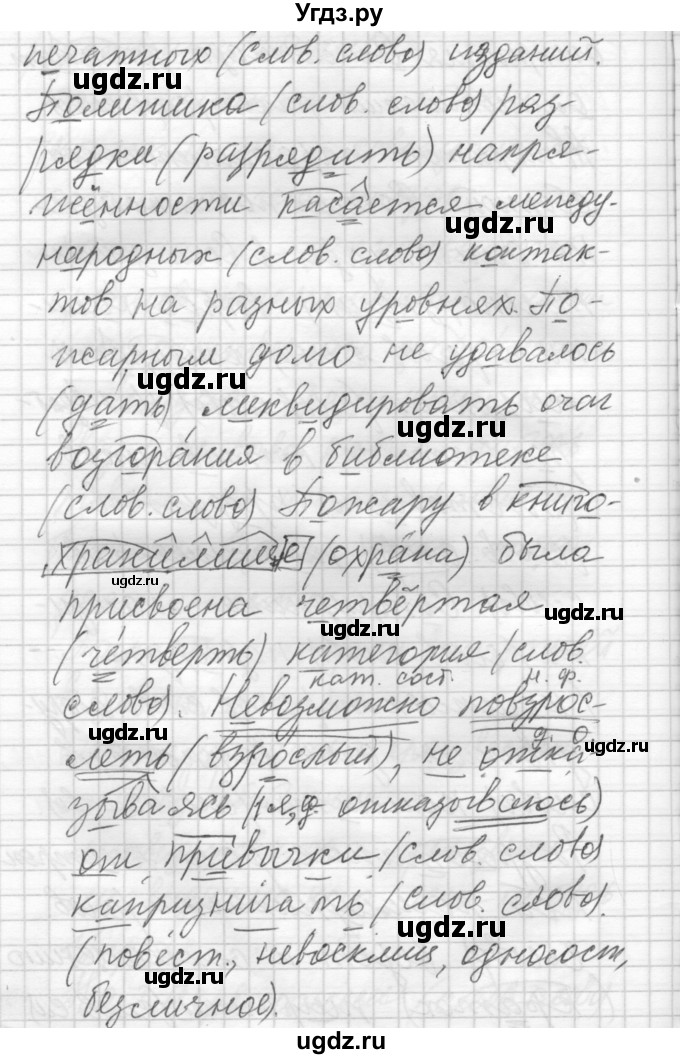 Угдз.ру
печатных (слов. слово) изданий.
ugdz.ru
Политика (слов. слово) раз-
рядки (разрядить) напря-
ugdz.ru
жённости касается между-
народных (слов. слово) контак-
ugdz.ru
тов на разных уровнях. По-
жарным долго не удавалось
ugdz.ru
(дать) ликвидировать очаг
ugdz.ru
возгорания в библиотеке
(слов. слово) Пожару в книго-
хранилище (охрана) была
ugdz.ru
ugdz.ru
присвоена четвёртая
ugdz.ru
ugdz.ru
(четверть) категория (слов.
нат. сост. н. ф.
слово). Невозможно повзрос-
ugdz.ru
д. о.
леть (взрослый), не отка-
ugdz.ru
зываясь (1 л., д. отказываюсь)
от привычки (слов. слово)
капризничать (слов. слово).
ugdz.ru
(повест., невосклиц., односост.,
безличное).
ugdz.ru
ugdz.ru